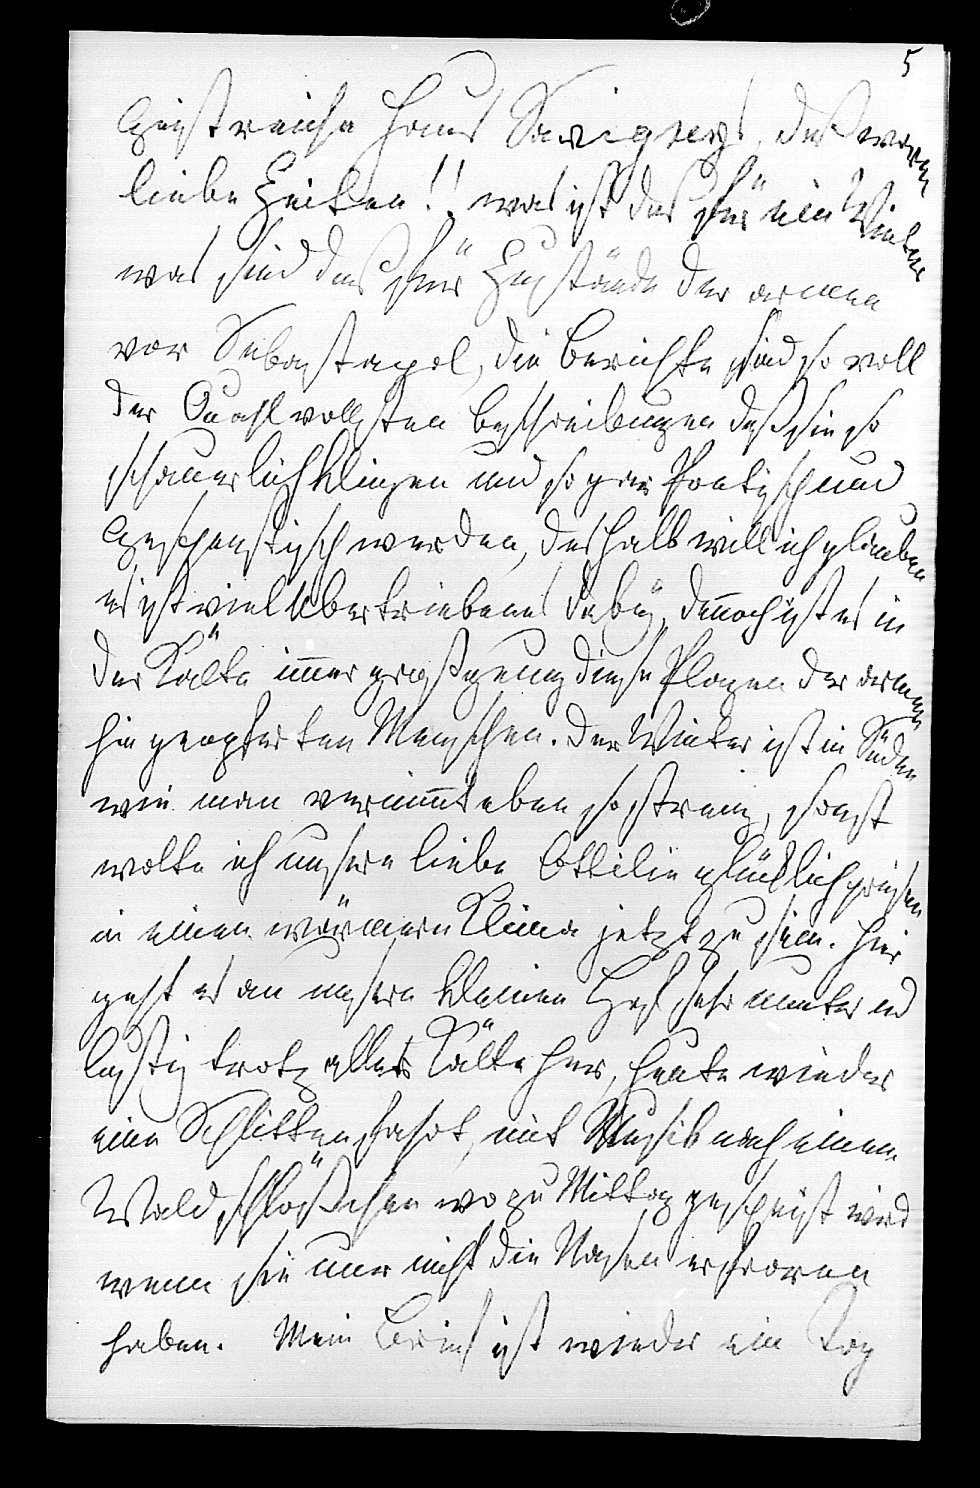 5
geistreiche Haus Savignys, daß waren
liebe Zeiten!! was ist das für ein Winter
was sind das für Zustände der armen
vor Sebastapol, die Berichte sind so voll
der Quahlvollsten Beschreibungen daß sie so
schauerlich klingen und sogar Poetisch und
Gespenstisch werden, deshalb will ich glauben
es ist viel Übertriebenes dabÿ, dennoch ist es in
der Kälte immer groß genug diese Plagen der armen
hin geopferten Menschen. Der Winter ist in Süden
wie man vernimmt eben so streng, sonst
wolte ich unsere liebe Ottilie glücklich preisen
in einen wärmern Klima jetzt zu sein. Hier
geht es an unsern kleinen Hof sehr munter und
lustig trotz aller Kälte her, heute wieder
eine Schlittenfahrt, mit Musik nach einem
Waldschlößchen wo zu Mittag gespeist wird
wenn sie nur nicht die Nasen erfroren
haben. Mein Brief ist wieder ein Tag